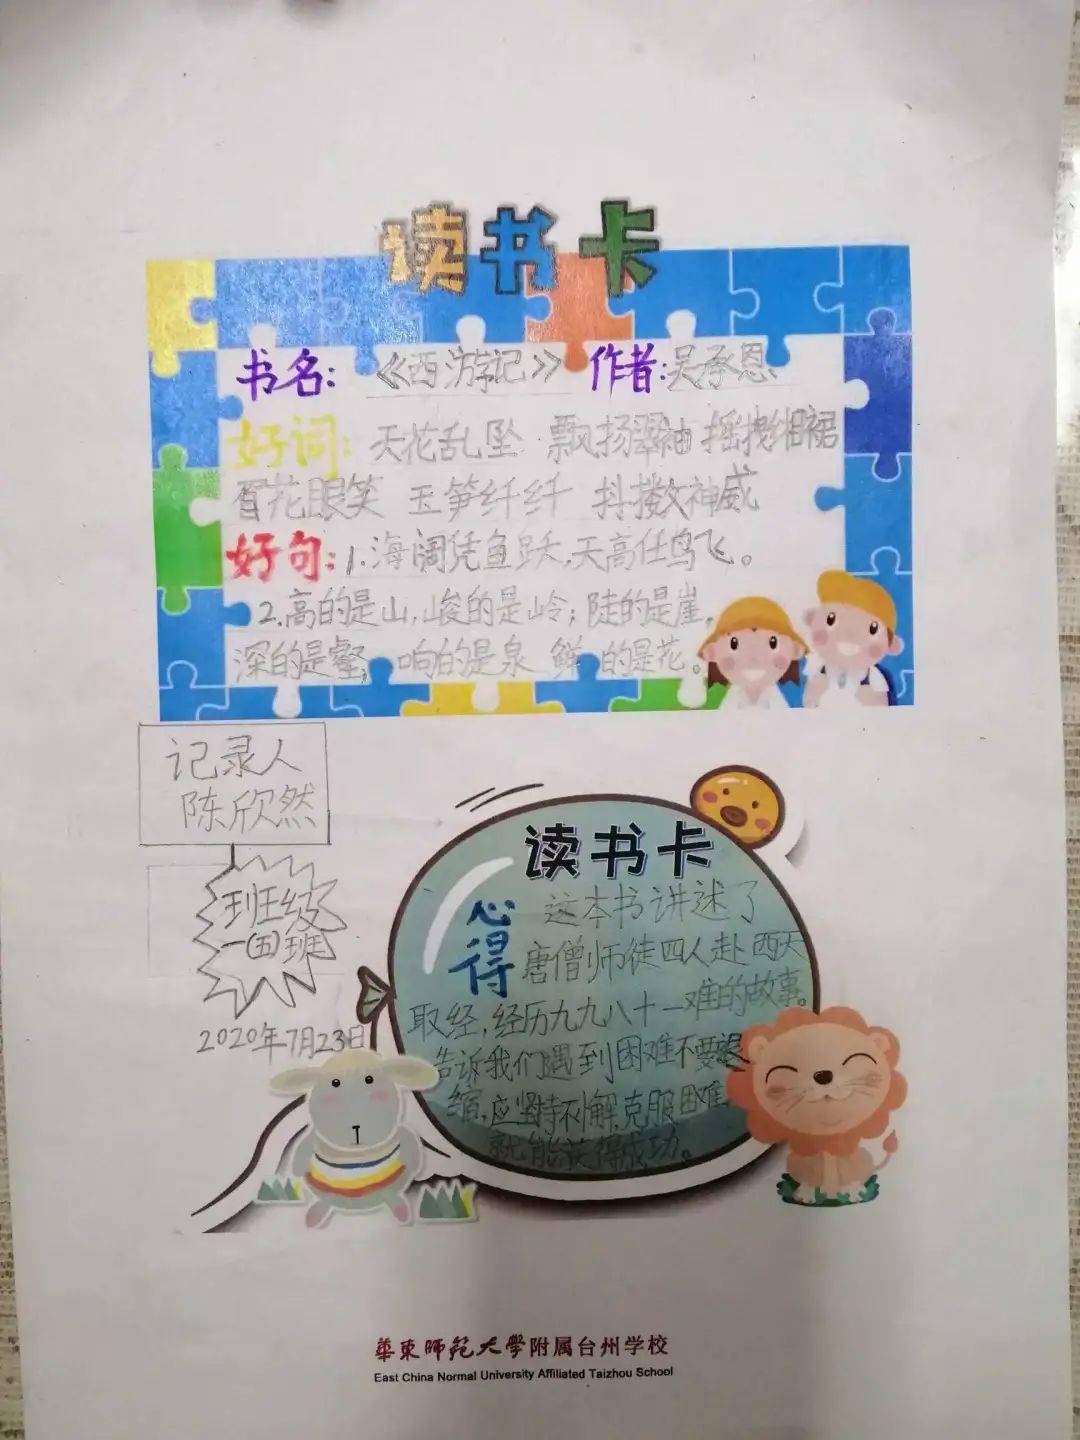 读书卡
书名：《西游记》 作者：吴承恩
好词：天花乱坠 飘扬翠袖 摇拽缃裙
眉花眼笑 玉笋纤纤 抖擞神威
好句：1.海阔凭鱼跃，天高任鸟飞。
2.高的是山，峻的是岭；陡的是崖，
深的是壑，响的是泉 鲜的是花。
记录人
陈欣然
班级
一（五）班
2020年7月23日
读书卡
心得
这本书讲述了
唐僧师徒四人赴西天
取经，经历九九八十一难的故事。
告诉我们遇到困难不要退
缩，应坚持不懈，克服困难
就能获得成功。
華東師範大學附属台州学校
East China Normal University Affiliated Taizhou School